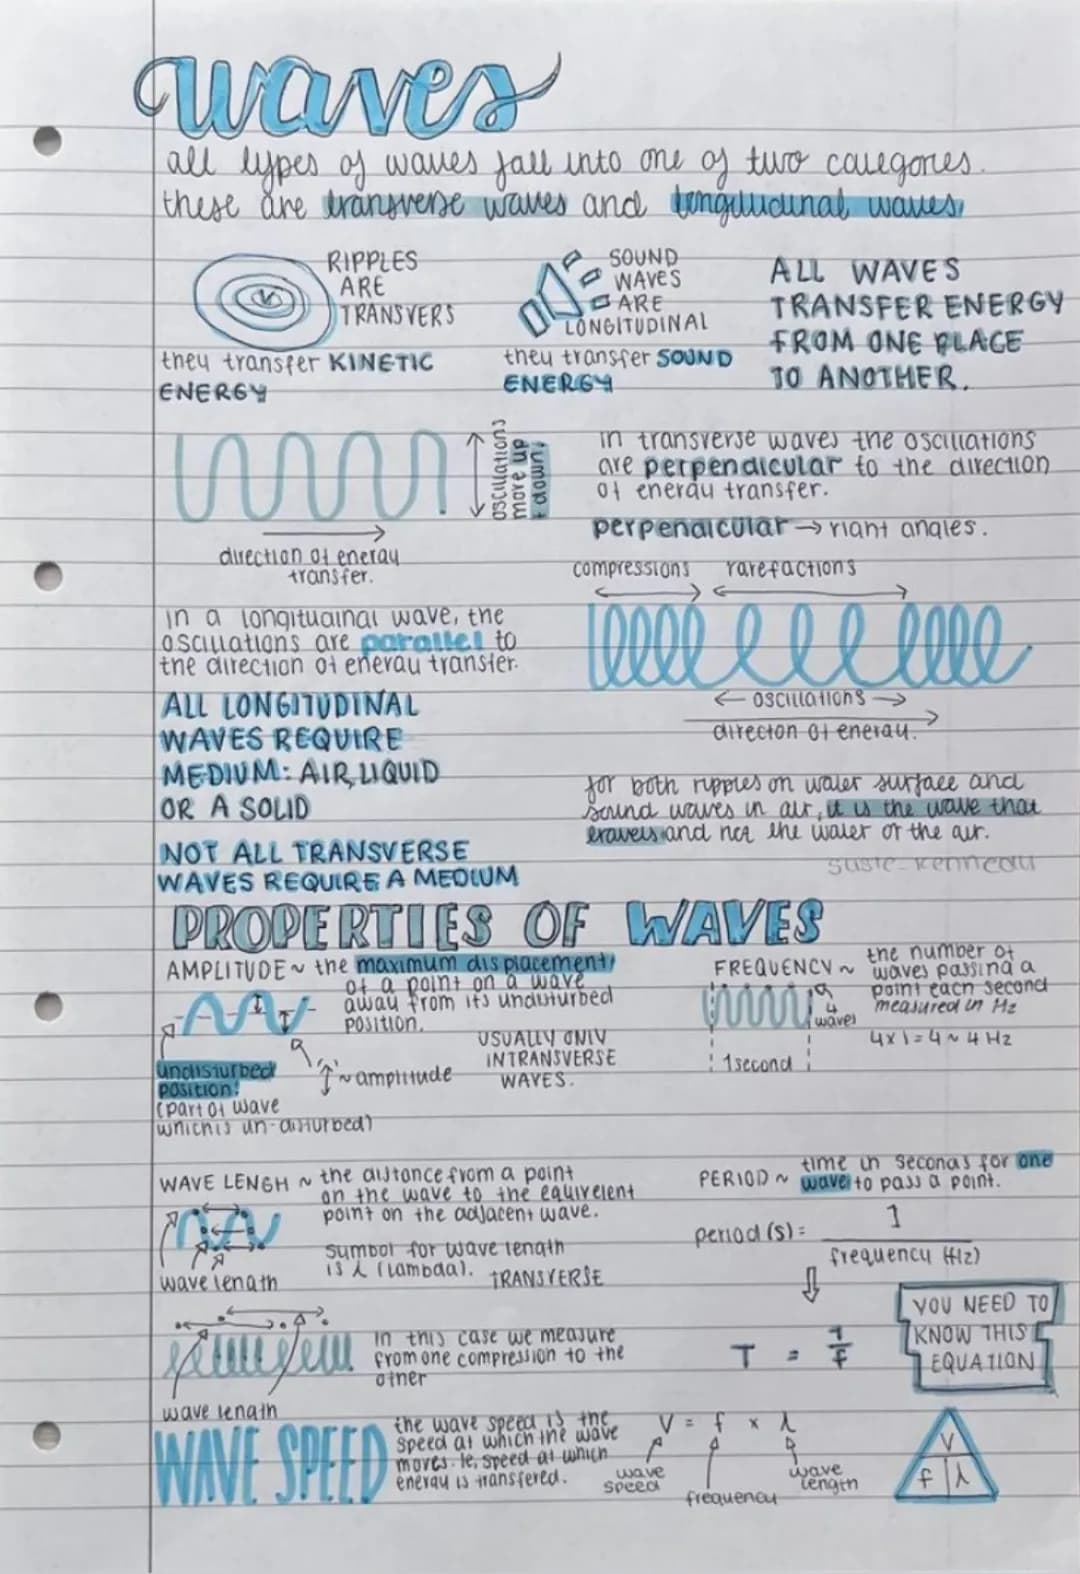 waves
all types of waves fall into one of two categories.
these are transverse waves and longitudinal waves.
RIPPLES
ARE
TRANSVERS
they transfer KINETIC
ENERGY
SOUND
WAVES
ARE
LONGITUDINAL
they transfer SOUND
ENERGY
ALL WAVES
TRANSFER ENERGY
FROM ONE PLACE
TO ANOTHER.
oscillations
move up
+ down
direction of energy
transfer.
in transverse waves the oscillations
are perpendicular to the direction
of energy transfer.
perpendicular → right angles.
compressions rarefactions
← oscillations →
directon of energy.
in a longitudinal wave, the
oscillations are parallel to
the direction of energy transfer.
ALL LONGITUDINAL
WAVES REQUIRE
MEDIUM: AIR, LIQUID
OR A SOLID
NOT ALL TRANSVERSE
WAVES REQUIRE A MEDIUM
for both ripples on water surface and
sound waves in air, it is the wave that
travels and not the water or the air.
susie-kennedy
PROPERTIES OF WAVES
AMPLITUDE ~ the maximum displacement
of a point on a wave
away from its undisturbed
position.
USUALLY ONLY
IN TRANSVERSE
WAVES.
~ amplitude
undisturbed
position:
(part of wave
which is un-disturbed)
FREQUENCY ~ the number of
waves passing a
point each second
measured in Hz
4
waves
1 second
4 x 1 = 4 ~ 4 Hz
WAVE LENGH ~ the distance from a point
on the wave to the equivelent
point on the adjacent wave.
symbol for wave length
is λ (lambda). TRANSVERSE
wave length
in this case we measure
from one compression to the
other
wave length
PERIOD ~ time in seconds for one
wave to pass a point.
period (s) = 1
frequency (Hz)
T = 1
f
YOU NEED TO
KNOW THIS
EQUATION
WAVE SPEED
the wave speed is the
speed at which the wave
moves. ie, speed at which
energy is transfered.
V = f x λ
wave
speed
frequency
wave
length
V
f λ